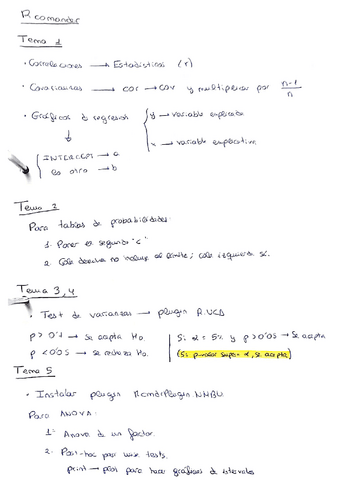 R comander
Tema 1
· Correlaciones → Estadísticos (r)
· Covarianzas → cor → cov y multiplicar por n-1/n
· Gráficos d regresión { y → variable explicada
x → variable explicativa
↓
{ INTERCEPT → a
La otra → b
Tema 2
Para tablas de probabilidades:
1. Poner el segundo "c"
2. Cola derecha no incluye el límite; cola izquierda sí.
Tema 3, 4
· Test de varianzas → plugin R.UCA
p > 0'1 → Se acepta H₀
p < 0'05 → se rechaza H₀
Si α = 5% y p > 0'05 → Se acepta
(Si p-valor supera α, se acepta)
Tema 5
· Instalar plugin RcmdrPlugin.NMBU
Para ANOVA:
1. Anova de un factor.
2. Post-hoc pair wise tests.
print → plots para hacer gráficos de intervalos